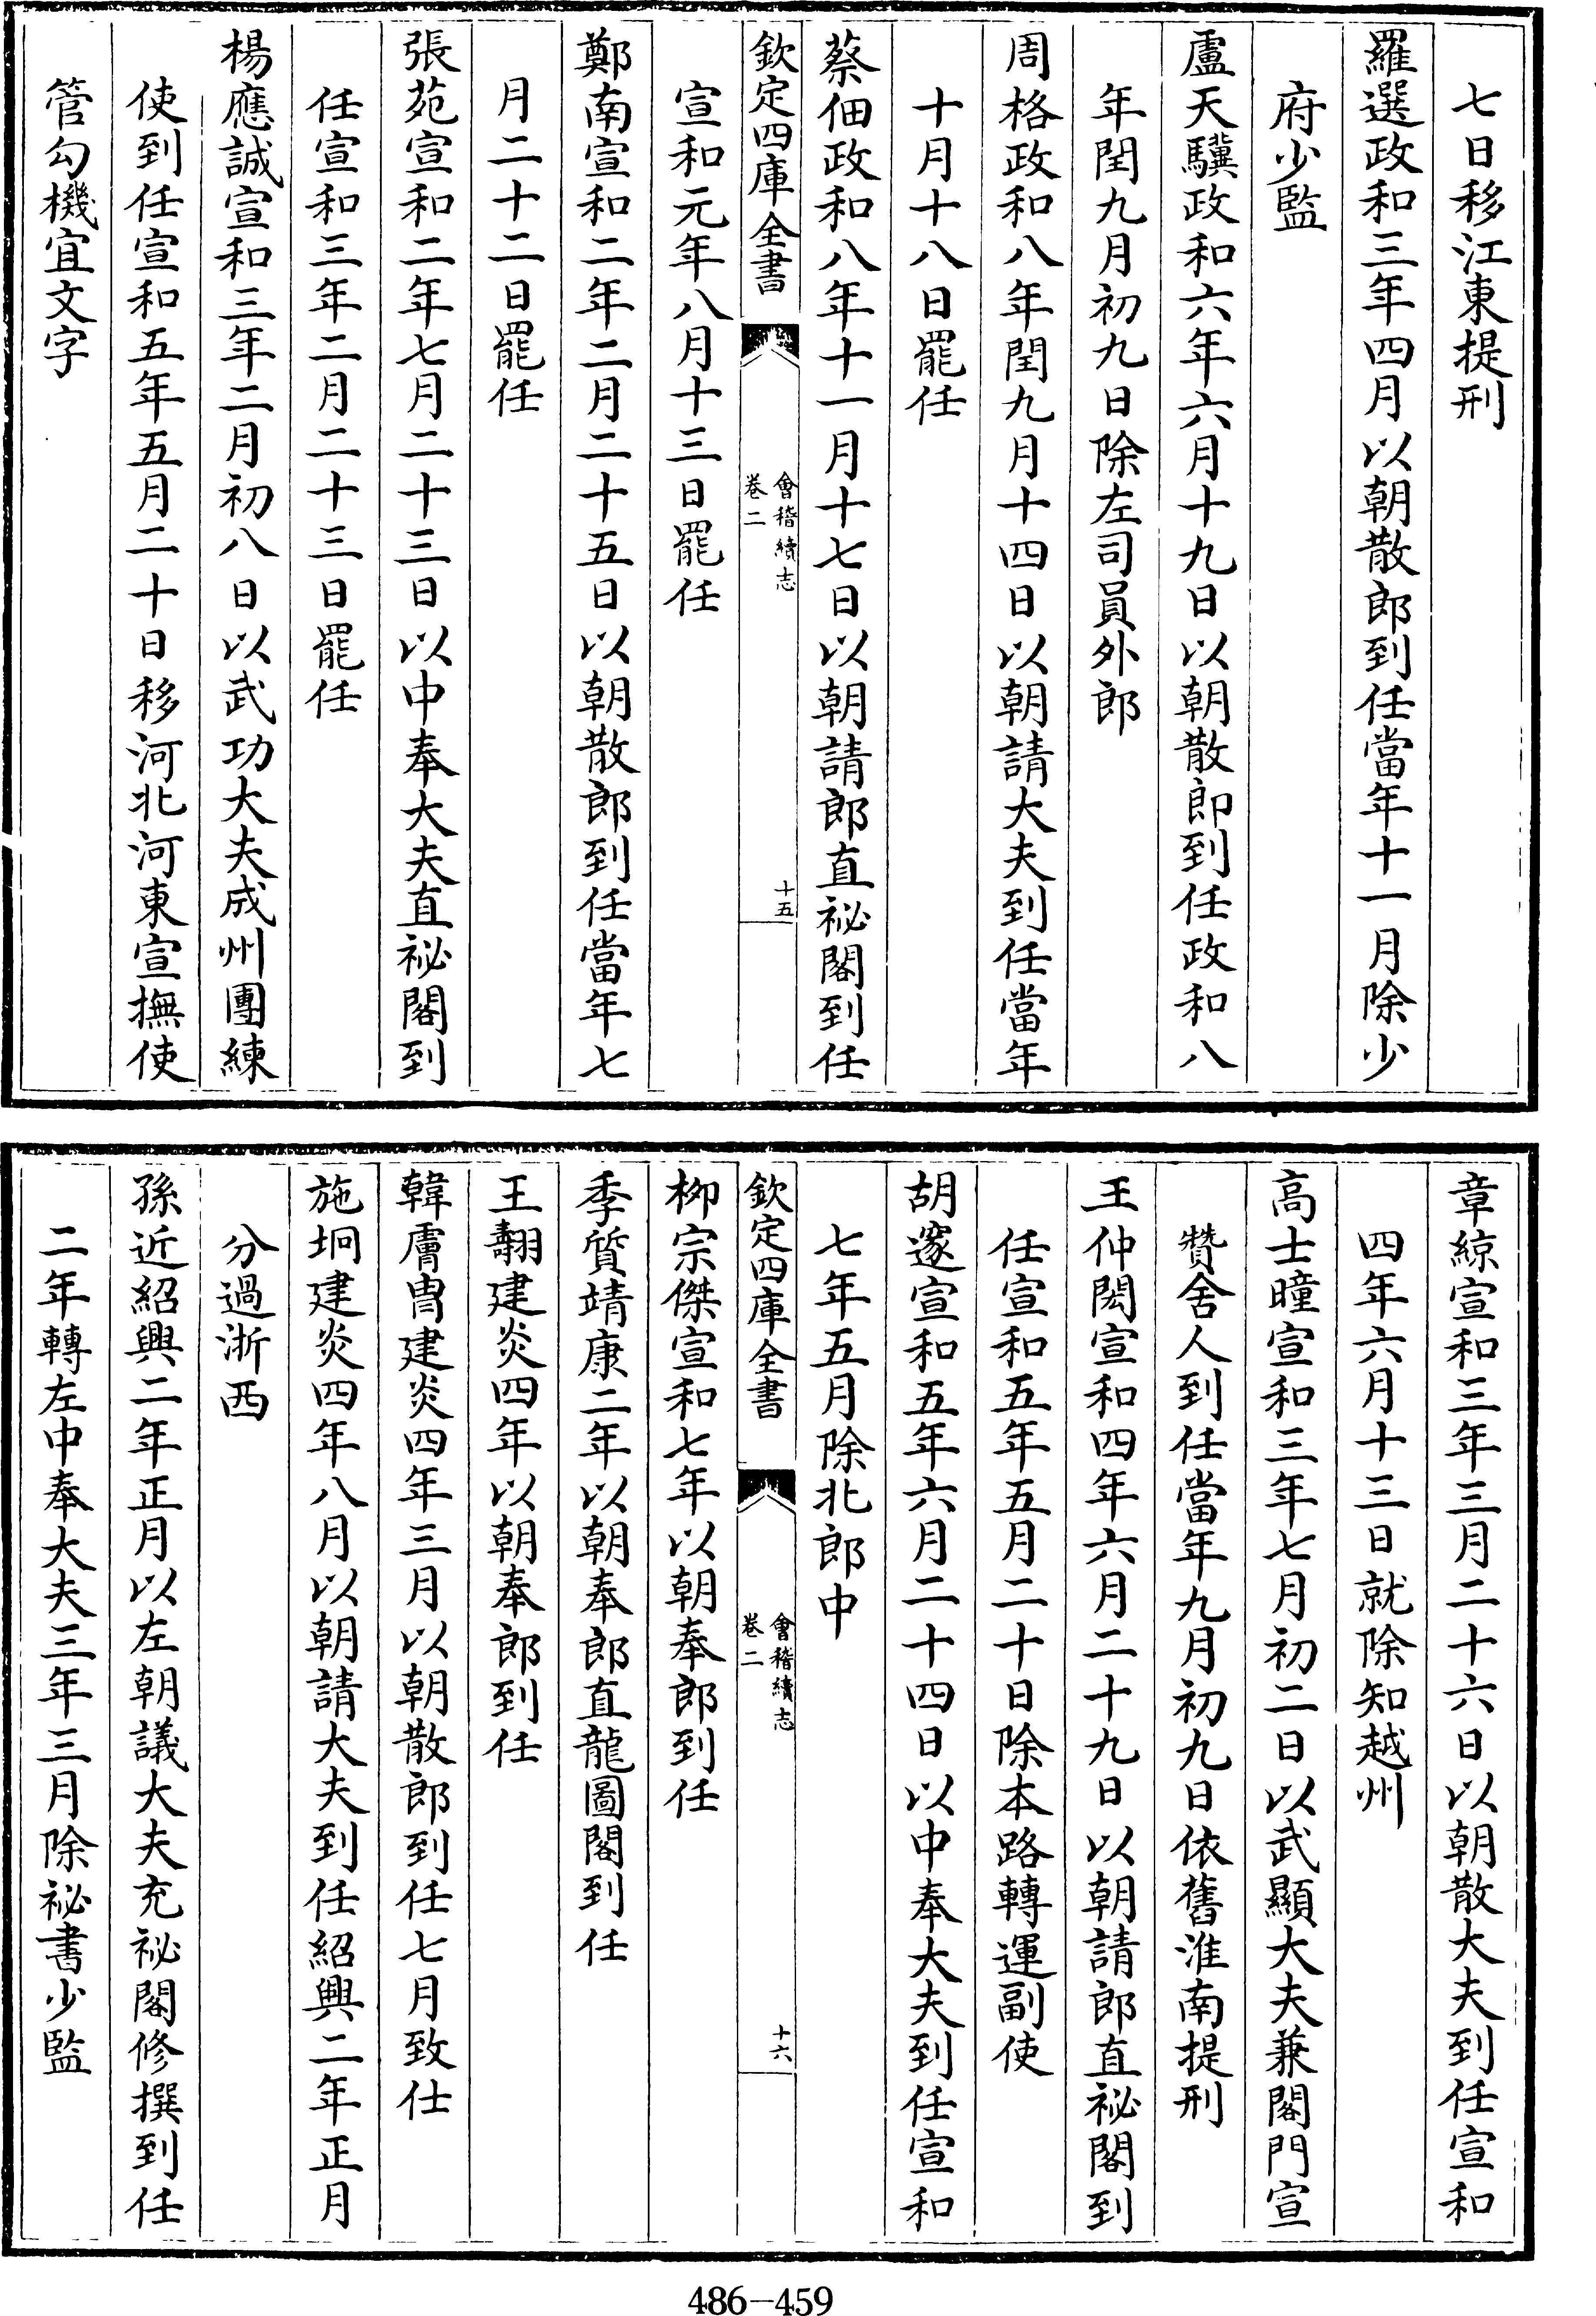 七日移江東提刑
羅選政和三年四月以朝散郎到任當年十一月除少
府少監
盧天驥政和六年六月十九日以朝散郎到任政和八
年閏九月初九日除左司員外郎
周格政和八年閏九月十四日以朝請大夫到任當年
十月十八日罷任
蔡佃政和八年十一月十七日以朝請郎直祕閣到任
欽定四庫全書
會稽續志
卷二
十五
宣和元年八月十三日罷任
鄭南宣和二年二月二十五日以朝散郎到任當年七
月二十二日罷任
張苑宣和二年七月二十三日以中奉大夫直祕閣到
任宣和三年二月二十三日罷任
楊應誠宣和三年二月初八日以武功大夫成州團練
使到任宣和五年五月二十日移河北河東宣撫使
管勾機宜文字
章綡宣和三年三月二十六日以朝散大夫到任宣和
四年六月十三日就除知越州
高士曈宣和三年七月初二日以武顯大夫兼閣門宣
贊舍人到任當年九月初九日依舊淮南提刑
王仲閎宣和四年六月二十九日以朝請郎直祕閣到
任宣和五年五月二十日除本路轉運副使
胡邃宣和五年六月二十四日以中奉大夫到任宣和
七年五月除北郎中
欽定四庫全書
會稽續志
卷二
十六
柳宗傑宣和七年以朝奉郎到任
季質靖康二年以朝奉郎直龍圖閣到任
王翿建炎四年以朝奉郎到任
韓膺胄建炎四年三月以朝散郎到任七月致仕
施坰建炎四年八月以朝請大夫到任紹興二年正月
分過浙西
孫近紹興二年正月以左朝議大夫充祕閣修撰到任
二年轉左中奉大夫三年三月除祕書少監
486-459